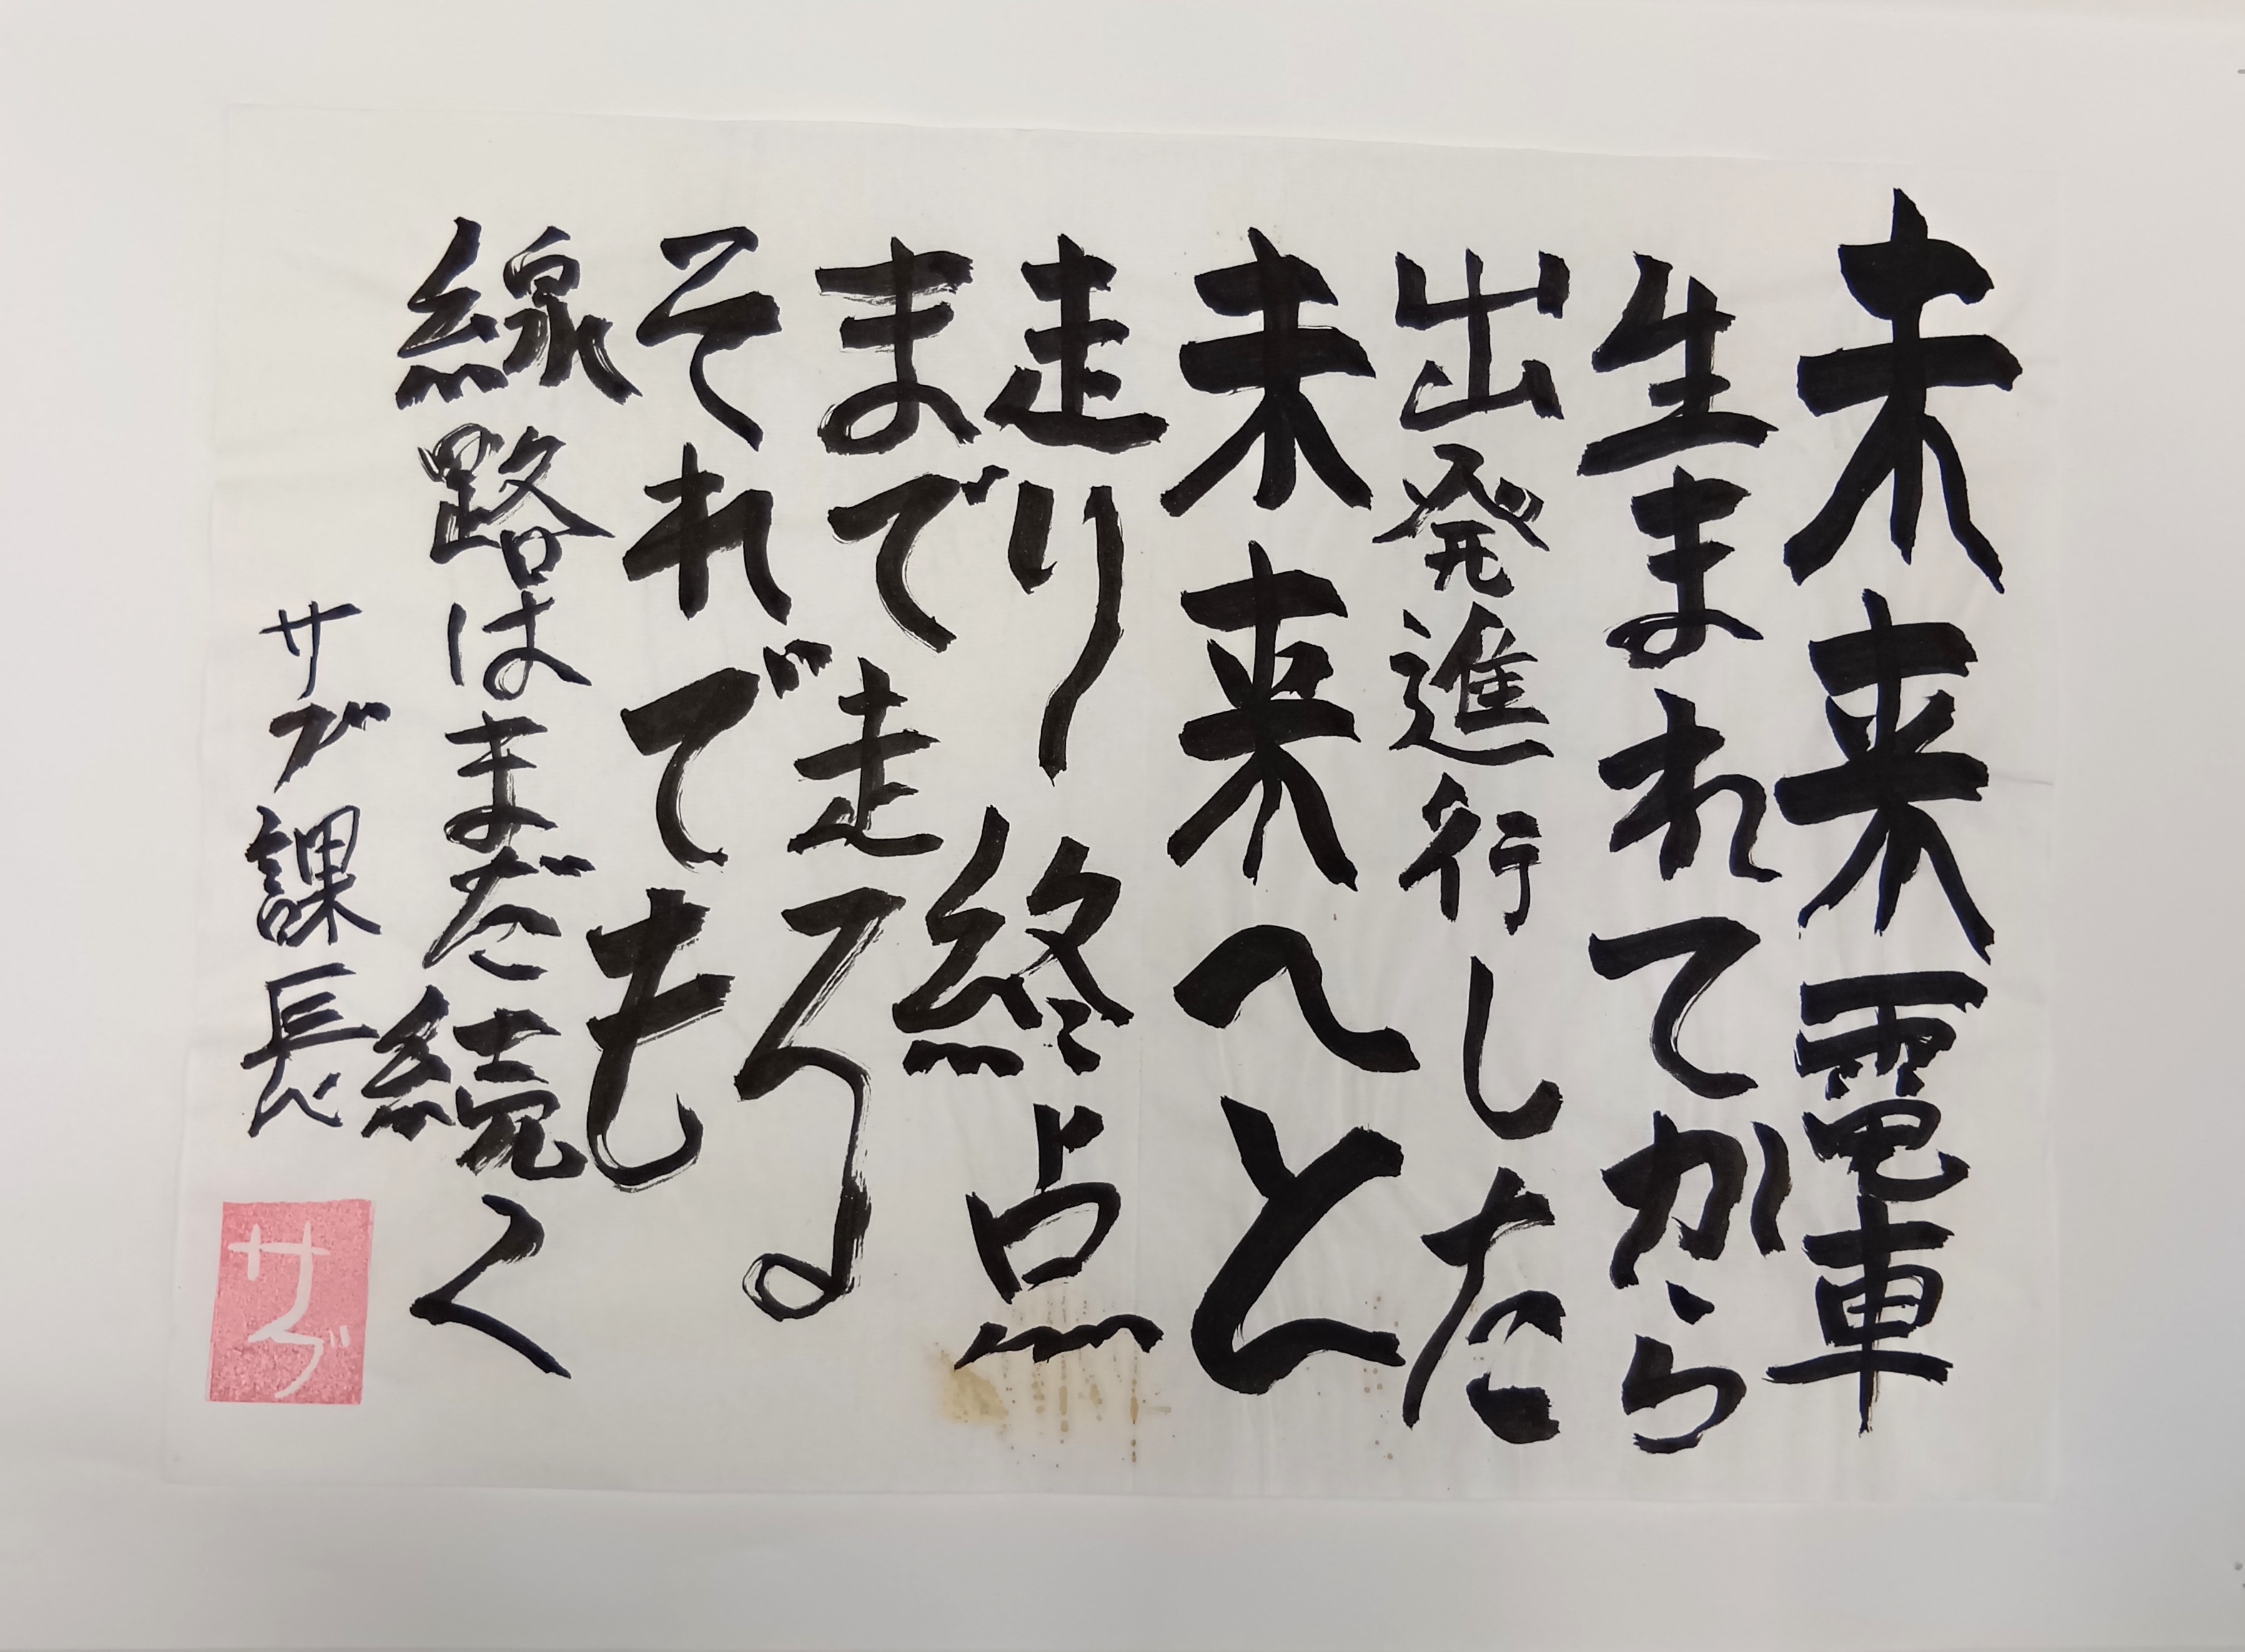 未来電車
生まれてから
出発進行した
未来へと
走り終点
まで走る
それでも
線路はまだ続く
サブ課長
サブ